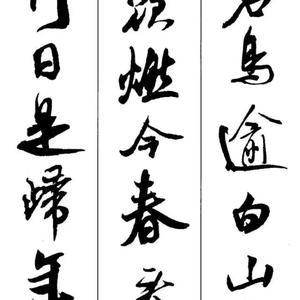 鳥逾白山
欲燃今春
日是歸年